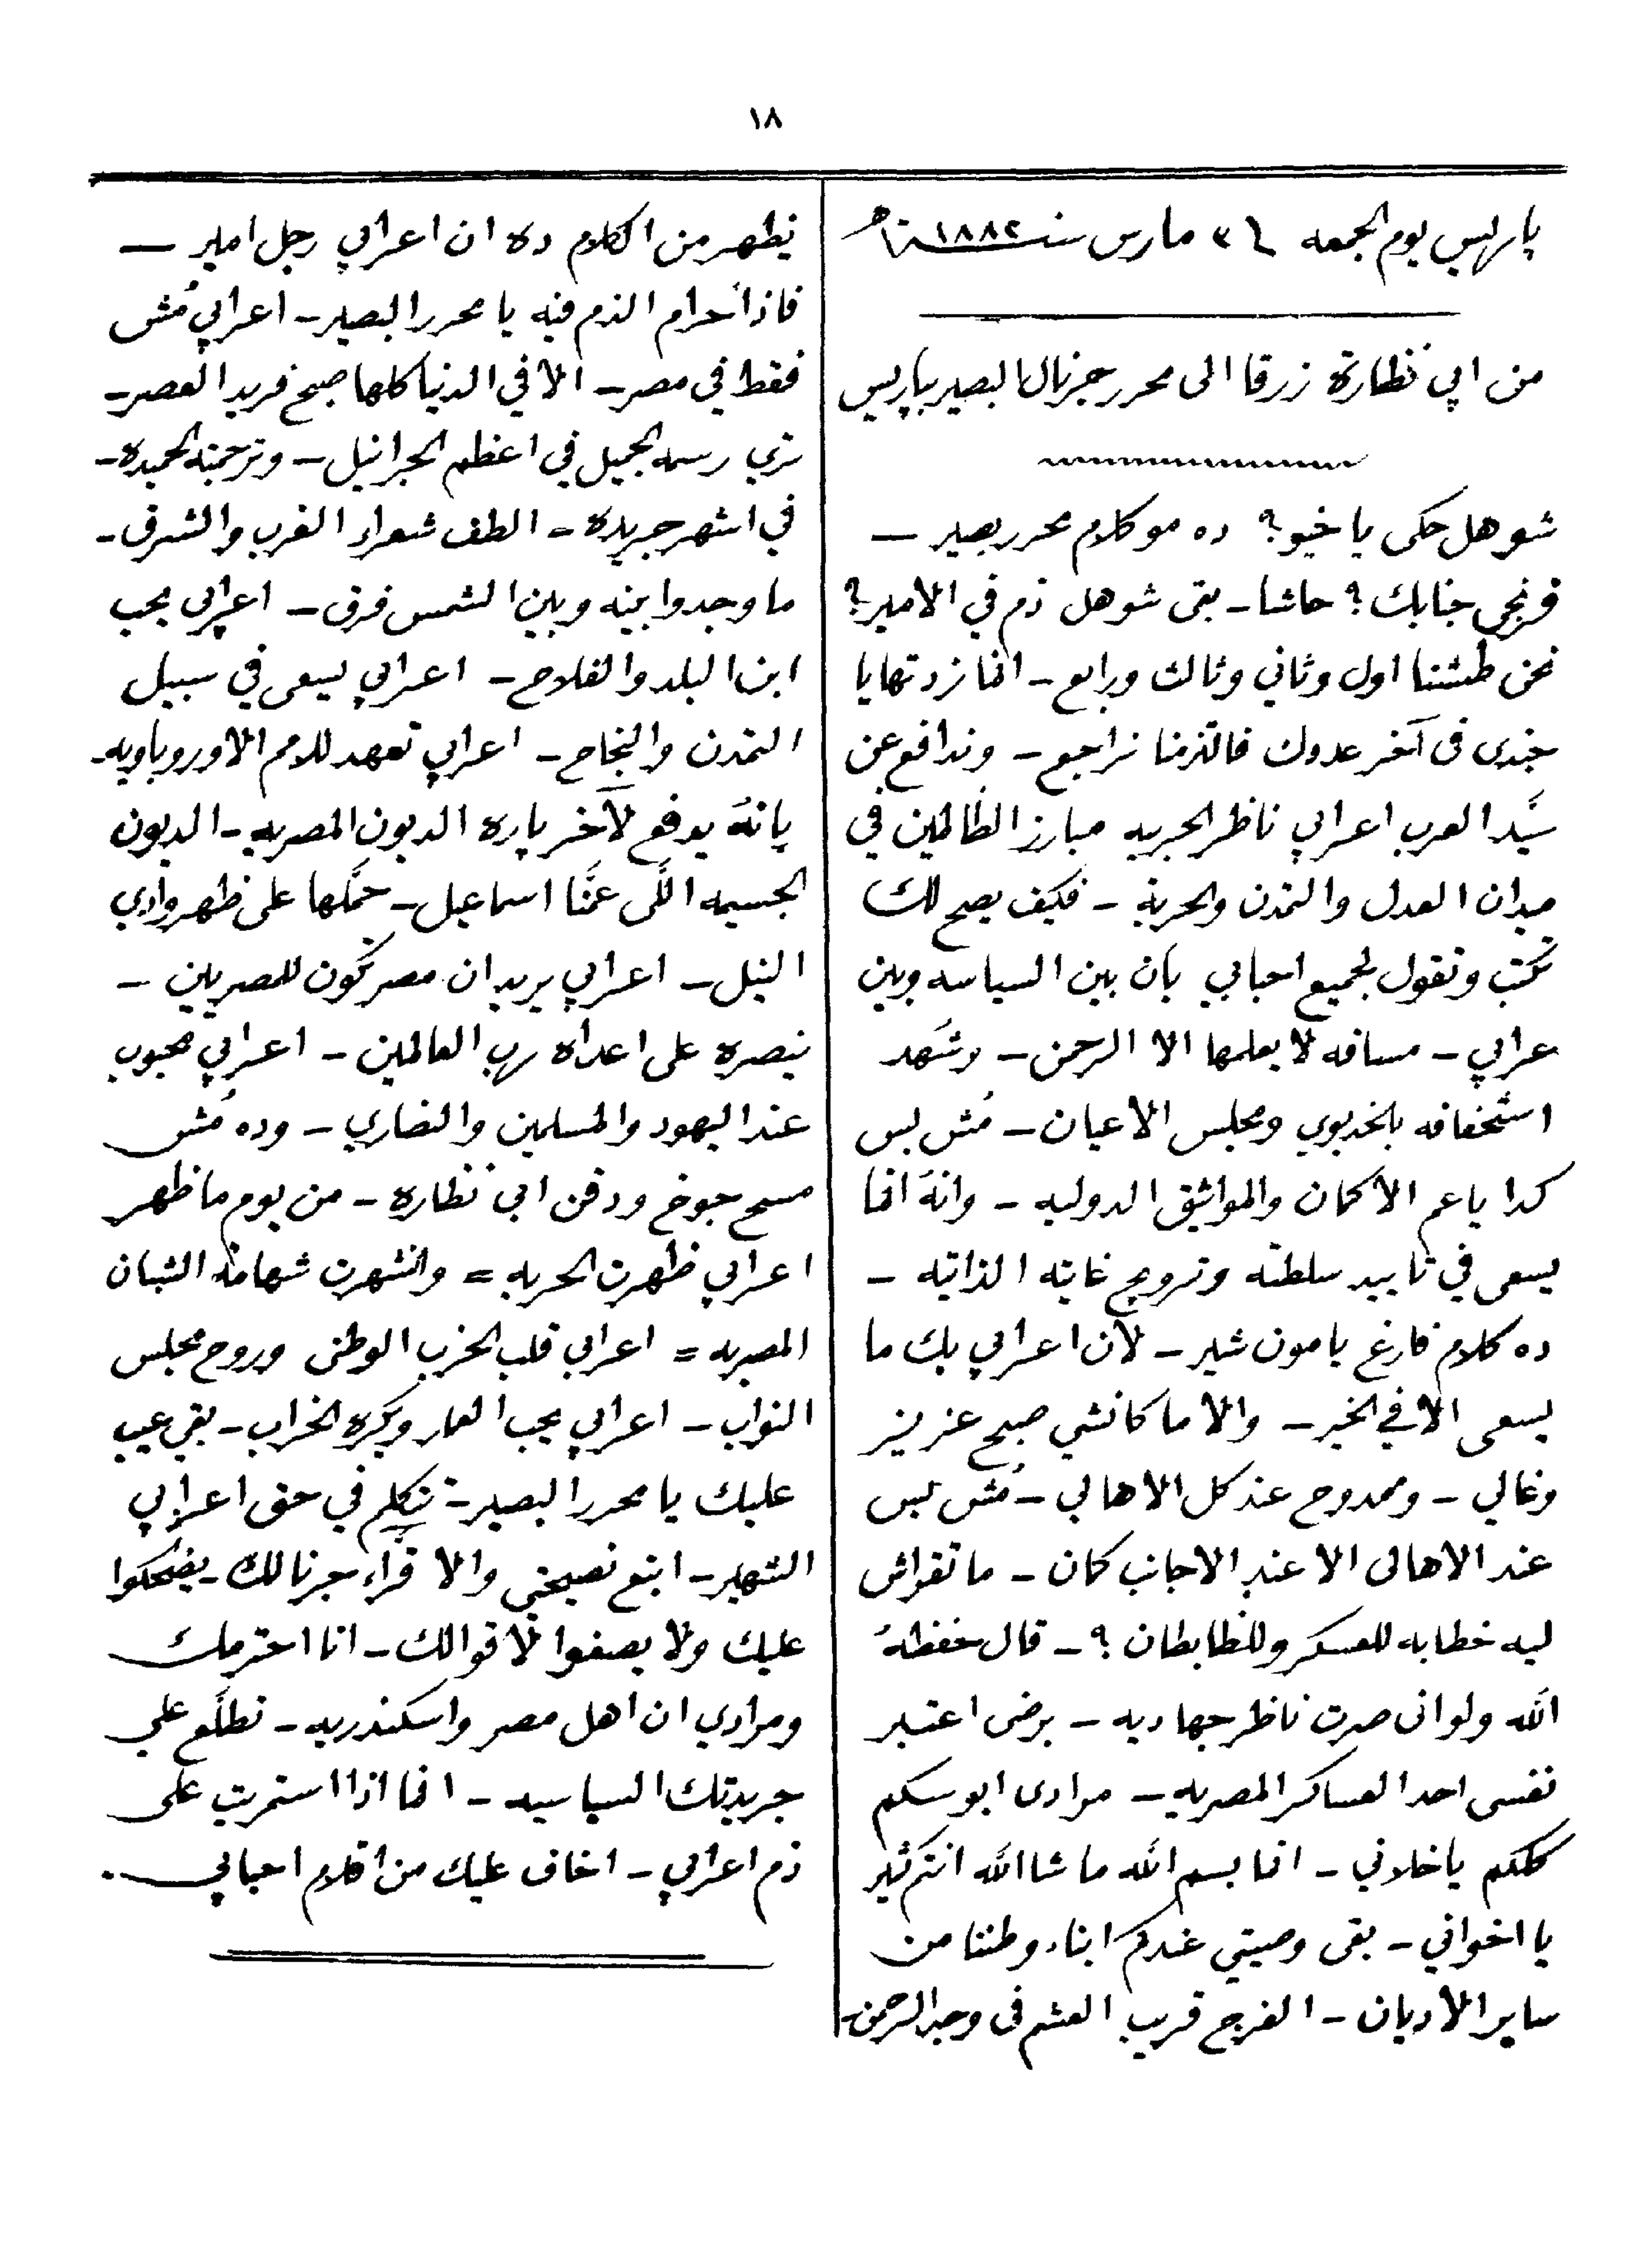 ١٨
پاريس يوم الجمعه في ٣ مارس سنت ١٨٨٢
من ابي نظارة زرقا الى محرر جرنال البصير بپاريس
شو هل حكى يا خيو؟ ده مو كلام محرر بصير ــ
فرنجى جنابك؟ حاشا ــ بقى شو هل ذم في الامير؟
نحن طشنا اول وثاني وثالث ورابع ــ انما زدتها يا
جندى فى آخر عددك فالتزمنا نراجع ــ وندافع عن
سيّد العرب اعرابي ناظر الحربيه مبارز الظالمين في
ميدان العدل والتمدن والحرية ــ فكيف يصح لك
تكتب وتقول لجميع احبابي بان بين السياسه وبين
عرابي ــ مسافه لا يعلمها الا الرحمن ــ وشهد
استخفافه بالخديوي ومجلس الاعيان ــ مُش بس
كدا يا عم الا كمان والمواثيق الدوليه ــ وانهُ انما
يسعى في تاييد سلطته وترويج غايته الذاتيه ــ
ده كلام فارغ يا مون شير ــ لان اعرابي بك ما
يسعى الا في الخير ــ والا ما كانشي صبح عزيز
وغالي ــ وممدوح عند كل الاهالي ــ مُش بس
عند الاهالى الا عند الاجانب كمان ــ ما تقراش
ليه خطابه للعسكر وللظابطان؟ ــ قال حفظهُ
الله ولو انى صرت ناظر جهاديه ــ برضى اعتبر
نفسى احد العساكر المصريه ــ مرادى ابوسكم
كلكم يا خلاني ــ انما بسم الله ما شا الله انتم كثير
يا اخواني ــ بقى وصيتي عندكم ابناء وطننا من
ساير الأديان ــ الفرج قريب العشم فى وجه الرحمن ــ
يظهر من الكلام ده ان اعرابي رجل امير ــ
فاذاً حرام الذم فيه يا محرر البصير ــ اعرابي مُش
فقط في مصر ــ الا في الدنيا كلها صبح فريد العصر ــ
تري رسمه الجميل في اعظم الجرانيل ــ وترجمته الحميده ــ
في اشهر جريده ــ الطف شعراء الغرب والشرق ــ
ما وجدوا بينه وبين الشمس فرق ــ اعرابي يحب
ابن البلد والفلاح ــ اعرابي يسعى في سبيل
التمدن والنجاح ــ اعرابي تعهد للامم الاوروپاويه ــ
بانهُ يدفع لآخر پاره الديون المصريه ــ الديون
الجسيمه اللّى عمَّنا اسماعيل ــ حمَّلها على ظهر وادي
النيل ــ اعرابي يريد ان مصر تكون للمصريين ــ
ينصره على اعداه رب العالمين ــ اعرابي محبوب
عند اليهود والمسلمين والنصاري ــ وده مُش
مسح جوخ ودقن ابي نظاره ــ من يوم ما ظهر
اعرابي ظهرت الحريه = واشتهرت شهامة الشبان
المصريه = اعرابي قلب الحزب الوطنى وروح مجلس
النواب ــ اعرابي يحب العمار ويكره الخراب ــ بقي عيب
عليك يا محرر البصير ــ تتكلم في حق اعرابي
الشهير ــ اتبع نصيحتي والا قراء جرنالك ــ يضحكوا
عليك ولا يصغوا لاقوالك ــ انا احترمك
ومرادي ان اهل مصر واسكندريه ــ تطلّع علي
جريدتك السياسيه ــ انما اذا استمريت على
ذم اعرابي ــ اخاف عليك من اقلام احبابي .